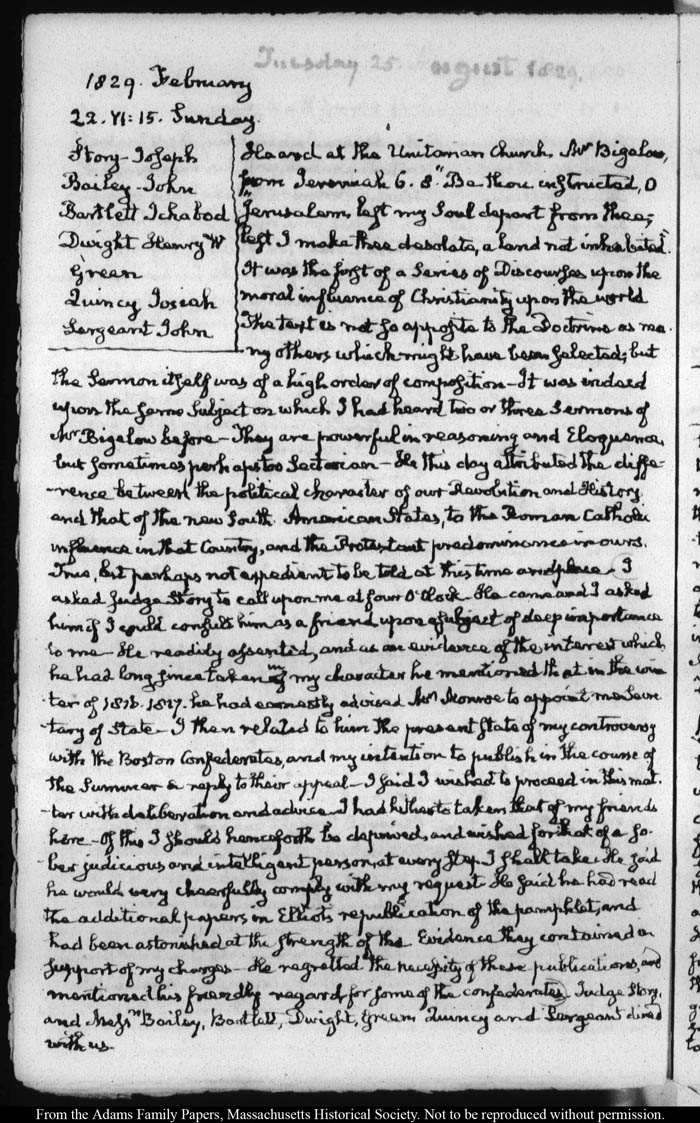 Tuesday 25. August 1829.
1829. February
22. VI: 15. Sunday.
Story-Joseph
Bailey-John
Bartlett Ichabod
Dwight Henry W
Green
Quincy Josiah
Sergeant John
Heard at the Unitarian Church, Mr Bigelow,
from Jeremiah 6. 8. "Be thou instructed, O
"Jerusalem, lest my Soul depart from thee;
lest I make thee desolate, a land not inhabited."
It was the first of a Series of Discourses upon the
moral influence of Christianity upon the world
The text is not so apposite to the Doctrine as ma-
ny others which might have been selected; but
the Sermon itself was of a high order of composition—It was indeed
upon the same Subject on which I had heard two or three Sermons of
Mr Bigelow before—They are powerful in reasoning and Eloquence,
but sometimes perhaps too Sectarian—He this day attributed the diffe-
-rence between the political character of our Revolution and History
and that of the new South American States, to the Roman Catholic
influence in that Country, and the Protestant predominance in ours.
True, but perhaps not expedient to be told at this time and place—I
asked Judge Story to call upon me at four O'Clock—He came and I asked
him if I could consult him as a friend upon a subject of deep importance
to me—He readily assented, and as an evidence of the interest which
he had long since taken in my character he mentioned that in the win-
ter of 1816. 1817. he had earnestly advised Mr Monroe to appoint me Secre-
tary of State—I then related to him the present state of my controversy
with the Boston Confederates, and my intention to publish in the course of
the Summer a reply to their appeal—I said I wished to proceed in this mat-
-ter with deliberation and advice—I had hitherto taken that of my friends
here—Of this I should henceforth be deprived, and wished for that of a so-
-ber judicious and intelligent person, at every step I shall take. He said
he would very cheerfully comply with my request. He said he had read
the additional papers in Elliot's republication of the pamphlet, and
had been astonished at the strength of the Evidence they contained in
support of my charges—He regretted the necessity of these publications, and
mentioned his friendly regard for some of the confederates. Judge Story,
and Messrs Bailey, Bartlett, Dwight, Green Quincy and Sergeant dined
with us.
From the Adams Family Papers, Massachusetts Historical Society. Not to be reproduced without permission.